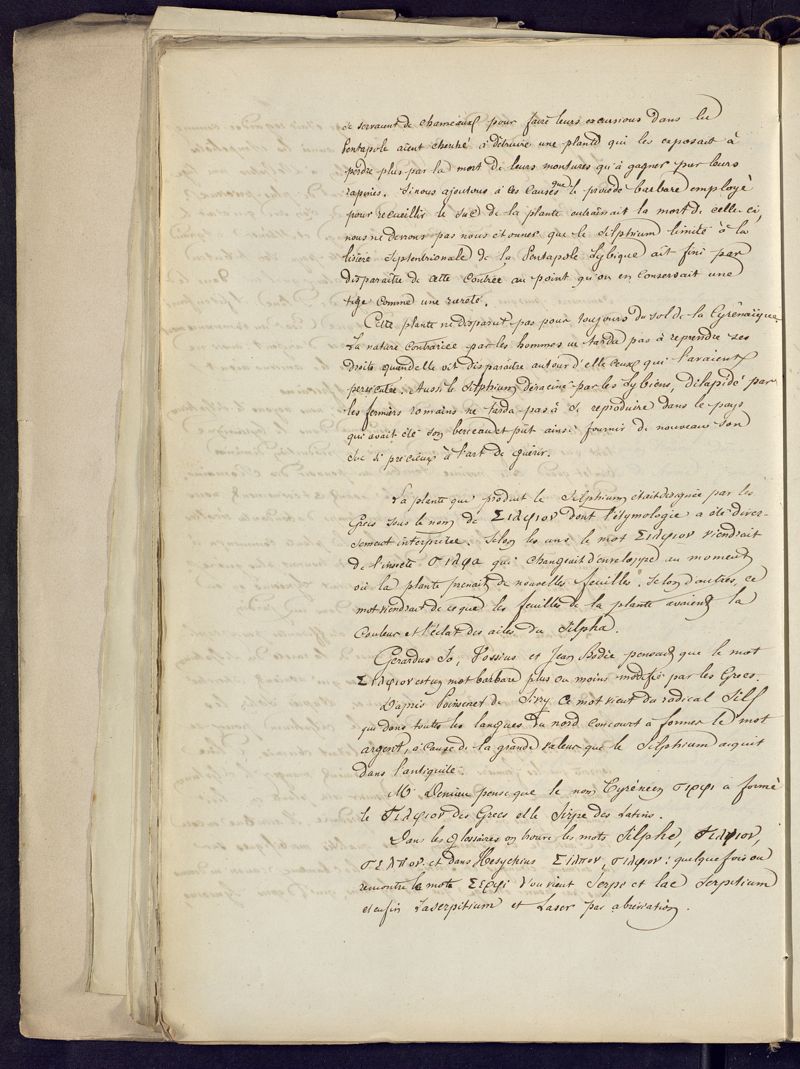 se servaient de chameaux pour faire leurs excursions dans la
Pentapole aient cherché à détruire une plante qui les exposait à
perdre plus par la mort de leurs montures qu'à gagner par leurs
rapines. Si nous ajoutons à ces causes que le procédé barbare employé
pour recueillir le suc de la plante entrainait la mort de celle-ci,
nous ne devrons pas nous étonner que le Silphium limité à la
lisière septentrionale de la Pentapole Lybique ait fini par
disparaitre de cette contrée au point qu'on en conservait une
tige comme une rareté.
Cette plante ne disparut pas pour toujours du sol de la Cyrénaïque.
La nature contrariée par les hommes ne tarda pas à reprendre ses
droits quand elle vit disparaître autour d'elle ceux qui l'avaient
persécutée. Aussi le Silphium déraciné par les Lybiens, dilapidé par
les fermiers romains ne tarda pas à se reproduire dans le pays
qui avait été son berceau et put ainsi fournir de nouveau son
suc si précieux à l'art de guérir.
La plante qui produit le Silphium était designée par les
Grecs sous le nom de Σιλφιον dont l'étymologie a été diver-
sement interprétée. Selon les uns le mot Σιλφιον viendrait
de l'insecte σιλφα qui changeait d'enveloppe au moment
où la plante prenait de nouvelles feuilles. Selon d'autres, ce
mot viendrait de ce que les feuilles de la plante avaient la
couleur et l'éclat des ailes du Silpha.
Gerardus Jo, Vossius et Jean Bodée pensent que le mot
Σιλφιον est un mot barbare plus ou moins modifié par les Grecs.
D'après Poinsenet de Sivry ce mot vient du radical Silf
qui dans toutes les langues du nord concourt à former le mot
argent, à cause de la grande valeur que le Silphium acquit
dans l'antiquité.
Mr Deniau pense que le nom Cyrénéen σιρφι a formé
le σιλφιον des Grecs et le Sirpe des Latins.
Dans les glossaires on trouve les mots Silphe, σιλφιον,
σελπον. et dans Hesychius Σιλπον, σιλφιον: quelquefois on
rencontre le mot Σιρφι d'ou vient Serpe et lac Serpitium
et enfin Laserpitium et Laser par abréviation.